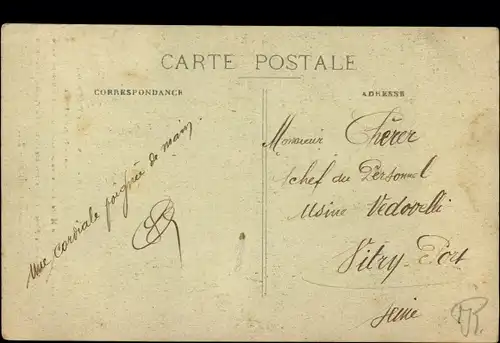 CARTE POSTALE
CORRESPONDANCE
ADRESSE
Une cordiale poignée de main
Monsieur Thérer
chef du Personnel
Usine Vedovelli
Vitry-Port
Seine